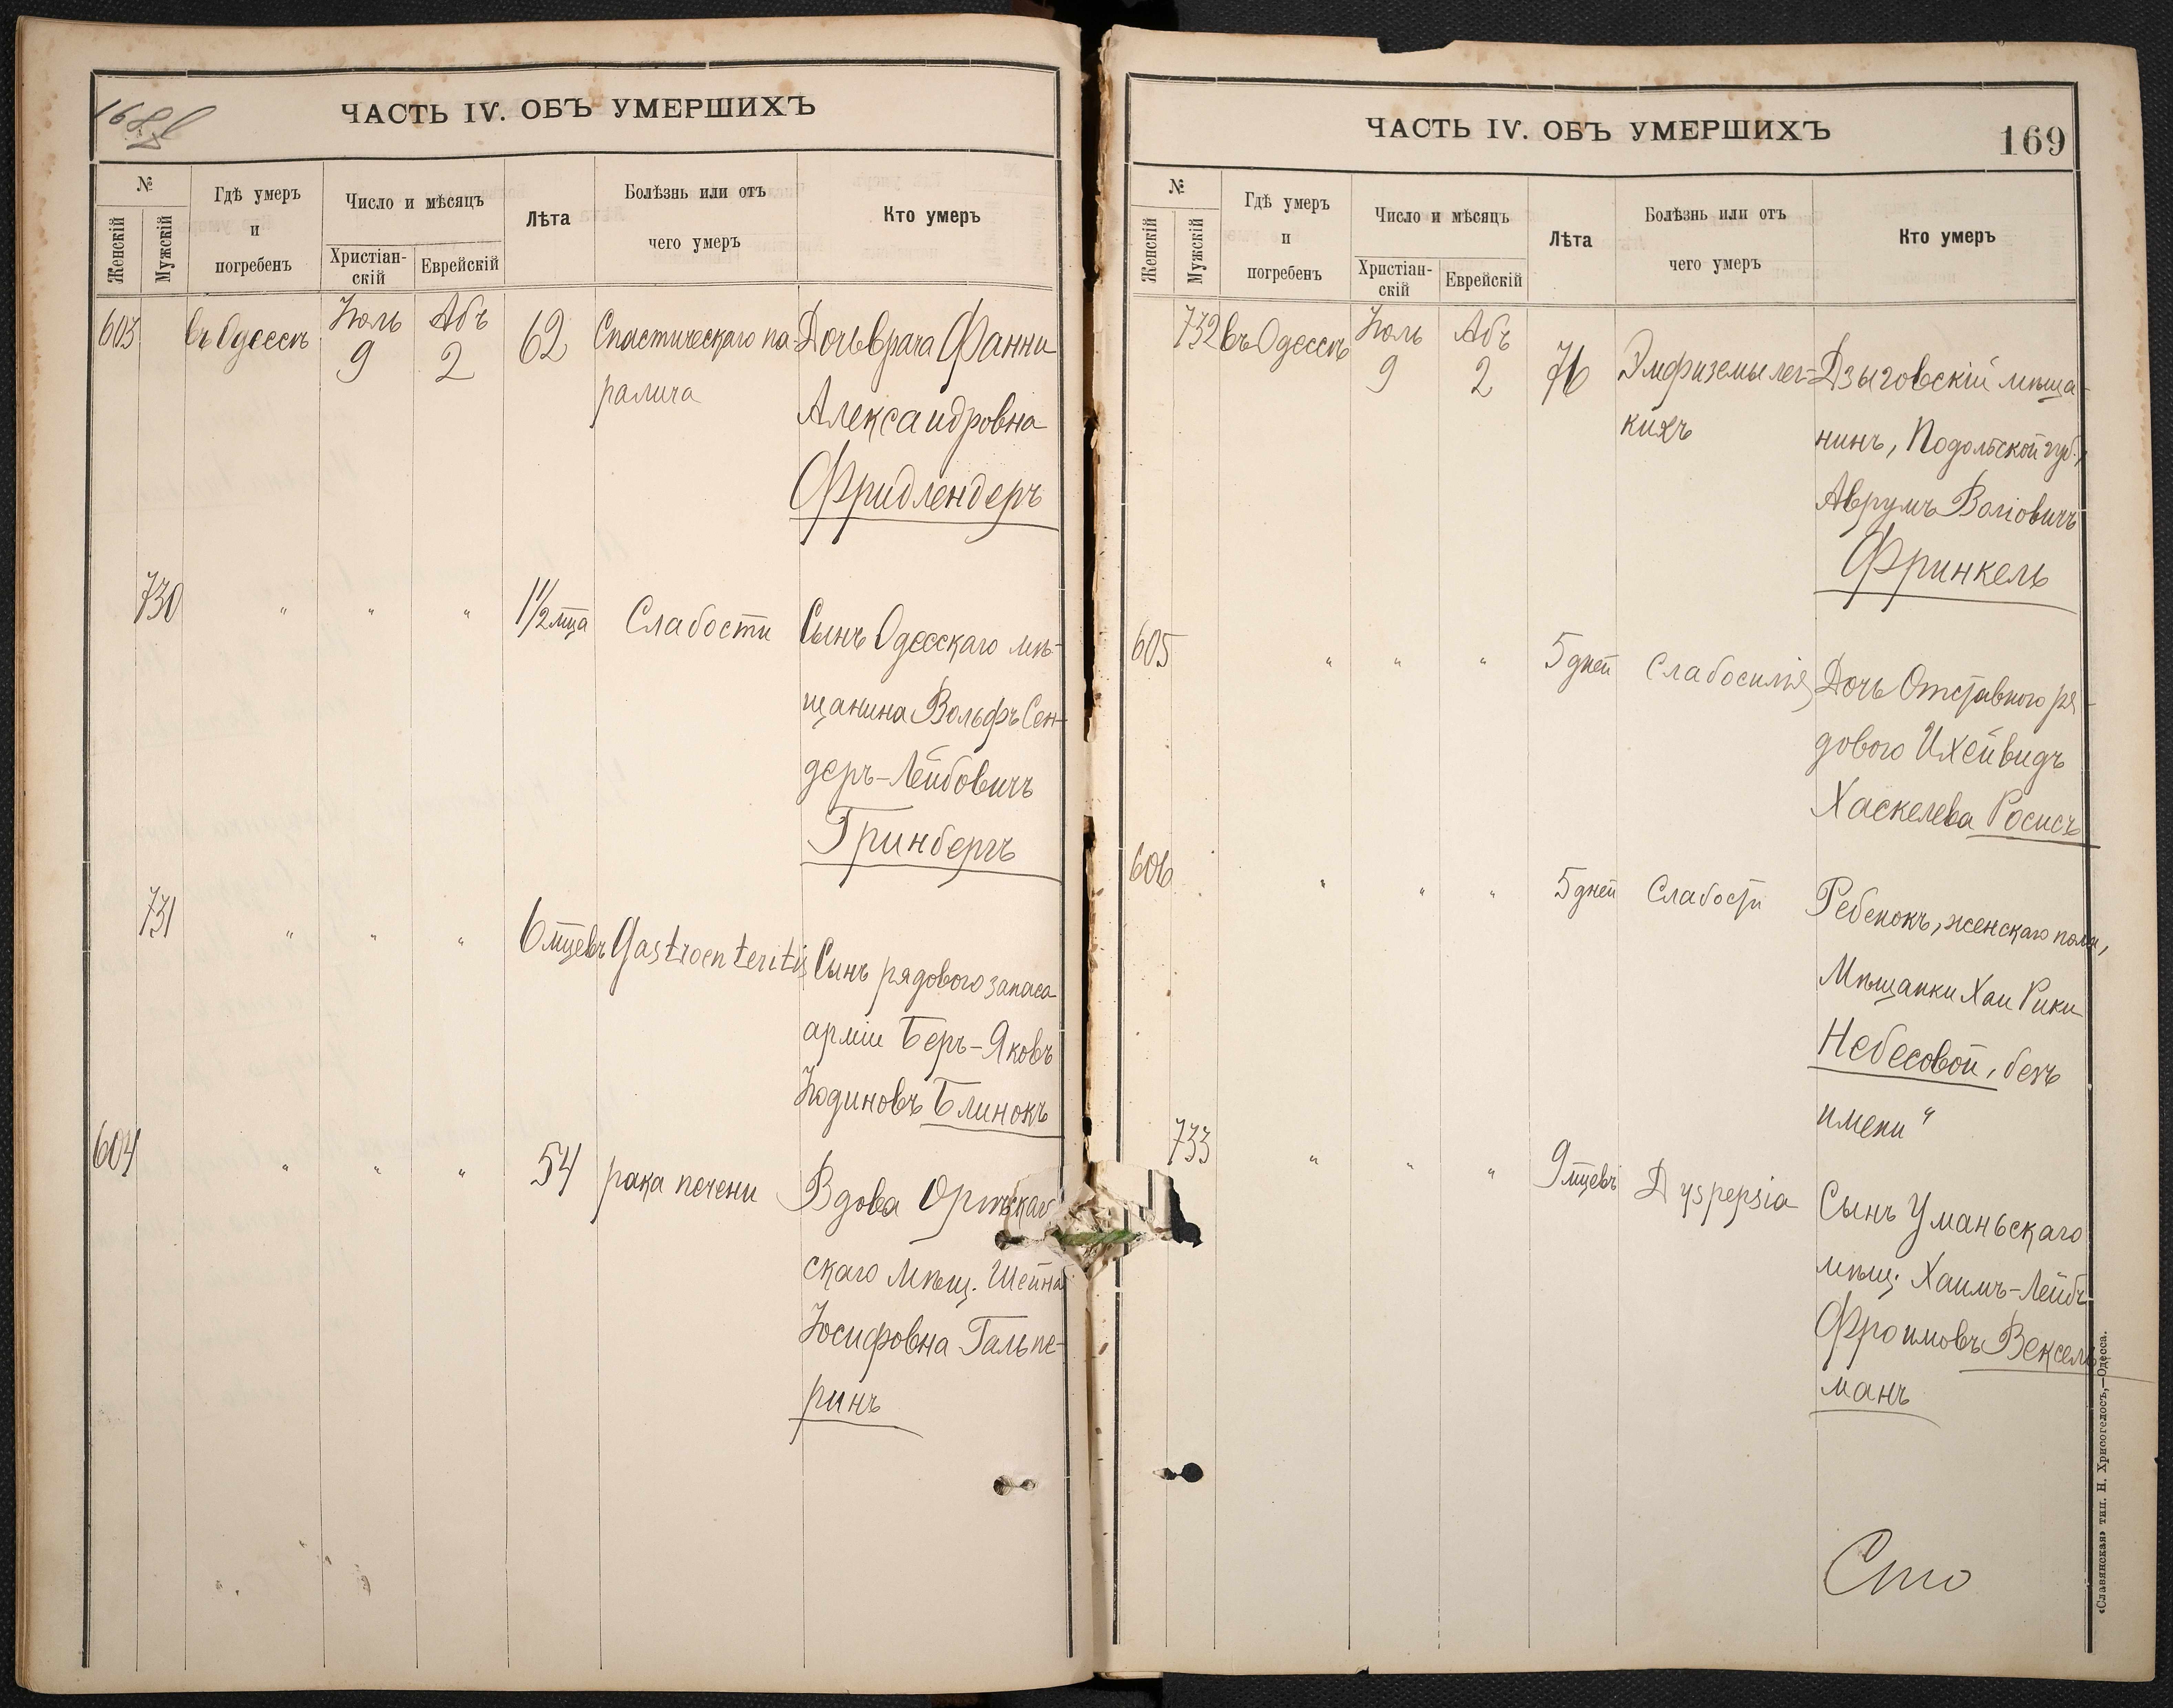 168
ЧАСТЬ IV. ОБЪ УМЕРШИХЪ
№
Женскій
Мужскій
Гдѣ умеръ
и
погребенъ
Число и мѣсяцъ
Христіан-
скій
Еврейскій
Лѣта
Болѣзнь или отъ
чего умеръ
Кто умеръ
603 въ Одессѣ Іюль 9 Абъ 2 62 Спастическаго па- Дочь врача Фанни
ралича Александровна
Фридлендеръ
730 " " " 1 1/2 мца Слабости Сынъ Одесскаго мѣ-
щанина Вольфъ Сен-
деръ-Лейбовичъ
Гринбергъ
731 " " " 6 мцевъ Gastroenteritis Сынъ рядового запаса
арміи Беръ-Яковъ
Юдиновъ Блинокъ
604 " " " 54 рака печени Вдова
скаго мѣщ. Шейна
Іосифовна Гальпе-
ринъ
ЧАСТЬ IV. ОБЪ УМЕРШИХЪ
169
№
Женскій
Мужскій
Гдѣ умеръ
и
погребенъ
Число и мѣсяцъ
Христіан-
скій
Еврейскій
Лѣта
Болѣзнь или отъ
чего умеръ
Кто умеръ
732 въ Одессѣ Іюль 9 Абъ 2 76 Эмфиземы лег- Дзыговскій мѣща-
кихъ нинъ, Подольской губ.,
Аврумъ Волiовичъ
Фринкель
605 " " " 5 дней Слабосилія Дочь Отставного ря-
дового Ихейвидъ
Хаскелева Росисъ
606 " " " 5 дней Слабости Ребенокъ, женскаго пола,
Мѣщанки Хаи Рики
Небесовой, безъ
имени "
733 " " " 9 мцевъ Dyspepsia Сынъ Уманьскаго
мѣщ. Хаимъ-Лейбъ
Фроимовъ Вексель-
манъ
Сто
«Славянская» тип. Н. Хрисогелосъ,—Одесса.